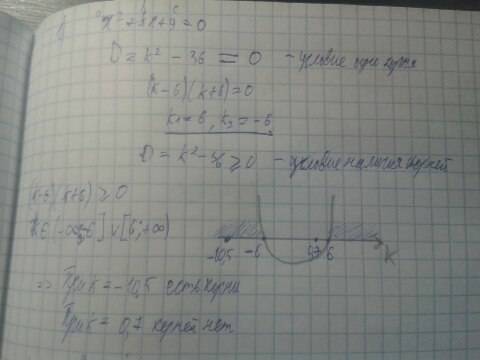 x² + kx + 9 = 0
D = k² - 36 = 0 - условие одн корня
(k-6)(k+6) = 0
k₁ = 6, k₂ = -6
D = k² - 36 ≥ 0 - условие наличия корней
(k-6)(k+6) ≥ 0
k ∈ (-∞; -6] ∪ [6; +∞)
-10,5 -6 0,7 6 K
=> При k = -10,5 есть корни
При k = 0,7 корней нет